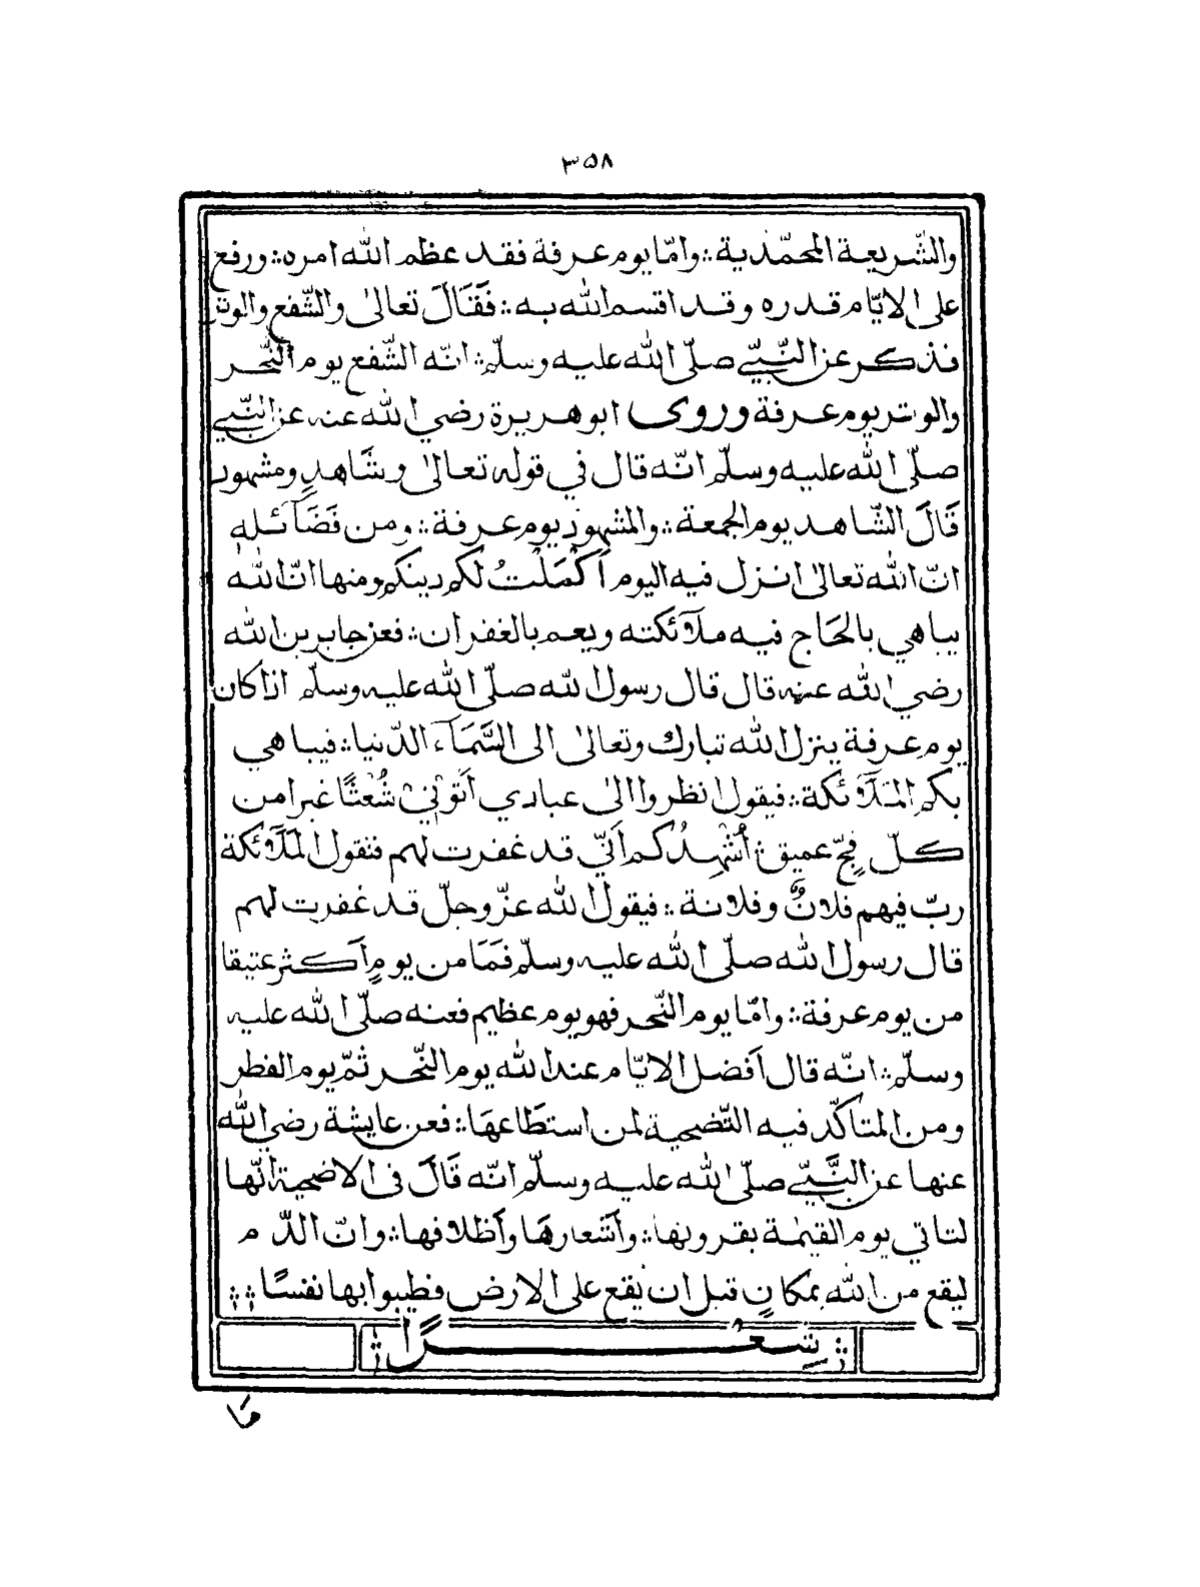 ٣٥٨
والشّريعة المحمّدية ؞ وامّا يوم عرفة فقد عظم الله امره ؞ ورفع
على الايّام قدره وقد اقسم الله به ؞ فَقَالَ تعالىٰ والشّفع والوتر
فذكر عن النّبيّ صلّى الله عليه وسلّم ؞ انّه الشّفع يوم النّحر
والوتر يوم عرفة وروى ابو هريرة رضي الله عنه عن النّبيّ
صلّى الله عليه وسلّم انّه قال في قوله تعالىٰ وشَاهدٍ ومشهود
قَالَ الشّاهد يوم الجمعة ؞ والمشهود يوم عرفة ؞ ومن فَضَآئله
انّ الله تعالىٰ انزل فيه اليوم اَكْمَلْتُ لكم دينكم ومنها انّ الله
يباهي بالحَاج فيه ملآئكته ويعم بالغفران ؞ فعن جابر بن الله
رضي الله عنه قال قال رسول الله صلّى الله عليه وسلّم اذا كان
يوم عرفة ينزل الله تبارك وتعالىٰ الى السَّمَآء الدّنيا ؞ فيباهي
بكم المَلَآئكة ؞ فيقول انظروا الىٰ عبادي أتَوْنِيْ شُعْثًا غبرا من
كلّ فِجّ عميق ؞ أُشْهِدُكم اَنّي قد غفرت لهم فتقول المَلَآئكة
ربّ فيهم فلانٌ وفلانة ؞ فيقول الله عزّ وجلّ قد غفرت لهم
قال رسول الله صلّى الله عليه وسلّم فَمَا من يومٍ اَكثر عتيقا
من يوم عرفة ؞ وامّا يوم النّحر فهو يوم عظيم فعنه صلّى الله عليه
وسلّم ؞ انّه قال اَفضل الايّام عند الله يوم النّحر ثمّ يوم الفطر
ومن المتأكّد فيه التّضحية لمن استطَاعهَا ؞ فعن عايشة رضي الله
عنها عن النَّبيّ صلّى الله عليه وسلّم انّه قَالَ فى الاضحية انّها
لتاتي يوم القيٰمة بقرونها ؞ وأشعارهَا وأظلافها ؞ وانّ الدّم
ليقع من الله بمكانٍ قبل ان يقع على الارض فطيبوا بها نفسًا ؞؞
؞ شِعْرًا ؞
مَا